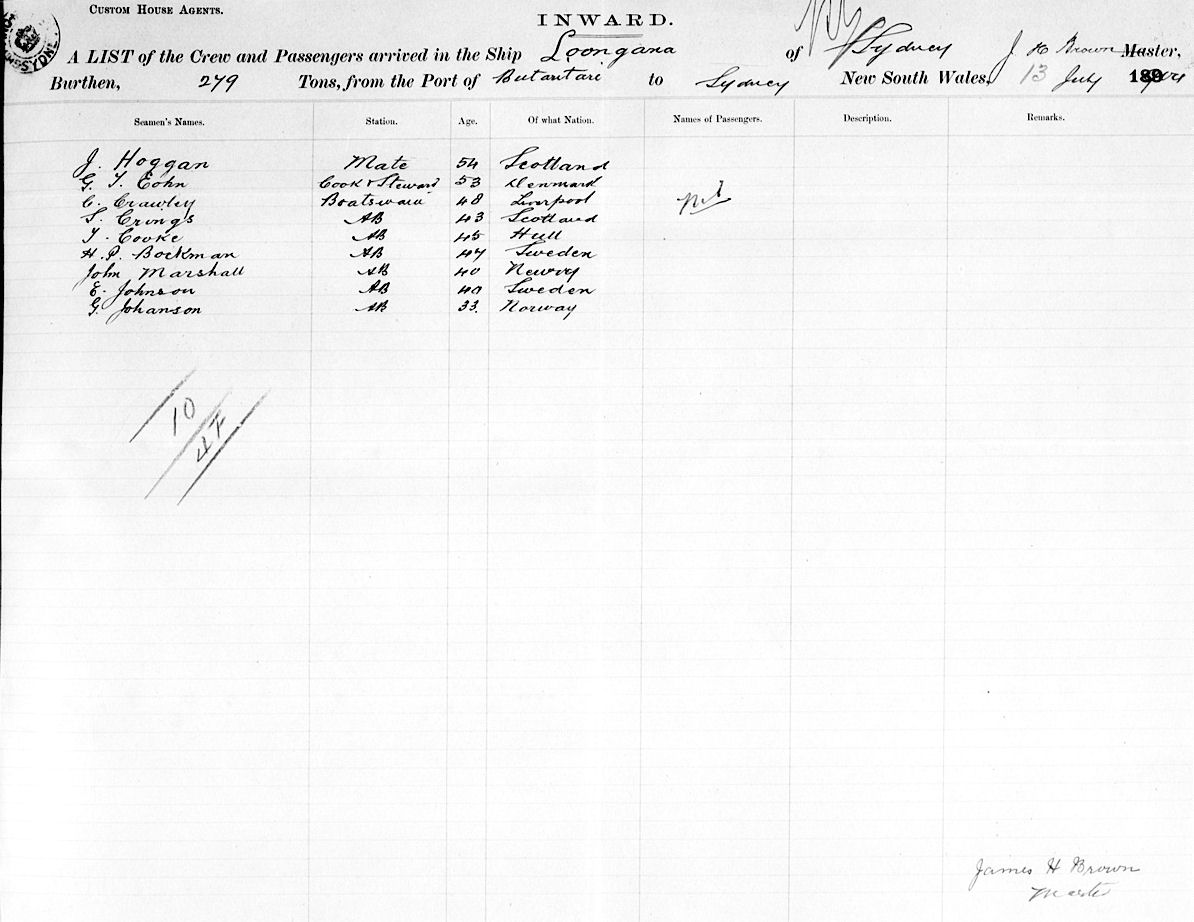 CUSTOM HOUSE AGENTS.
INWARD.
A LIST of the Crew and Passengers arrived in the Ship Loongana of Sydney J H Brown Master,
Burthen, 279 Tons, from the Port of Butaritari to Sydney New South Wales, 13 July 189
Seamen's Names. Station. Age. Of what Nation. Names of Passengers. Description. Remarks.
J. Hoggan Mate 54 Scotland
G. T. Eohn Cook & Steward 53 Denmark
C. Crawley Boatswain 48 Liverpool Nil
S. Crings AB 43 Scotland
T. Cooke AB 45 Hull
H. P. Bockman AB 47 Sweden
John Marshall AB 40 Newry
E. Johnson AB 40 Sweden
G. Johanson AB 33. Norway
10
James H Brown
Master